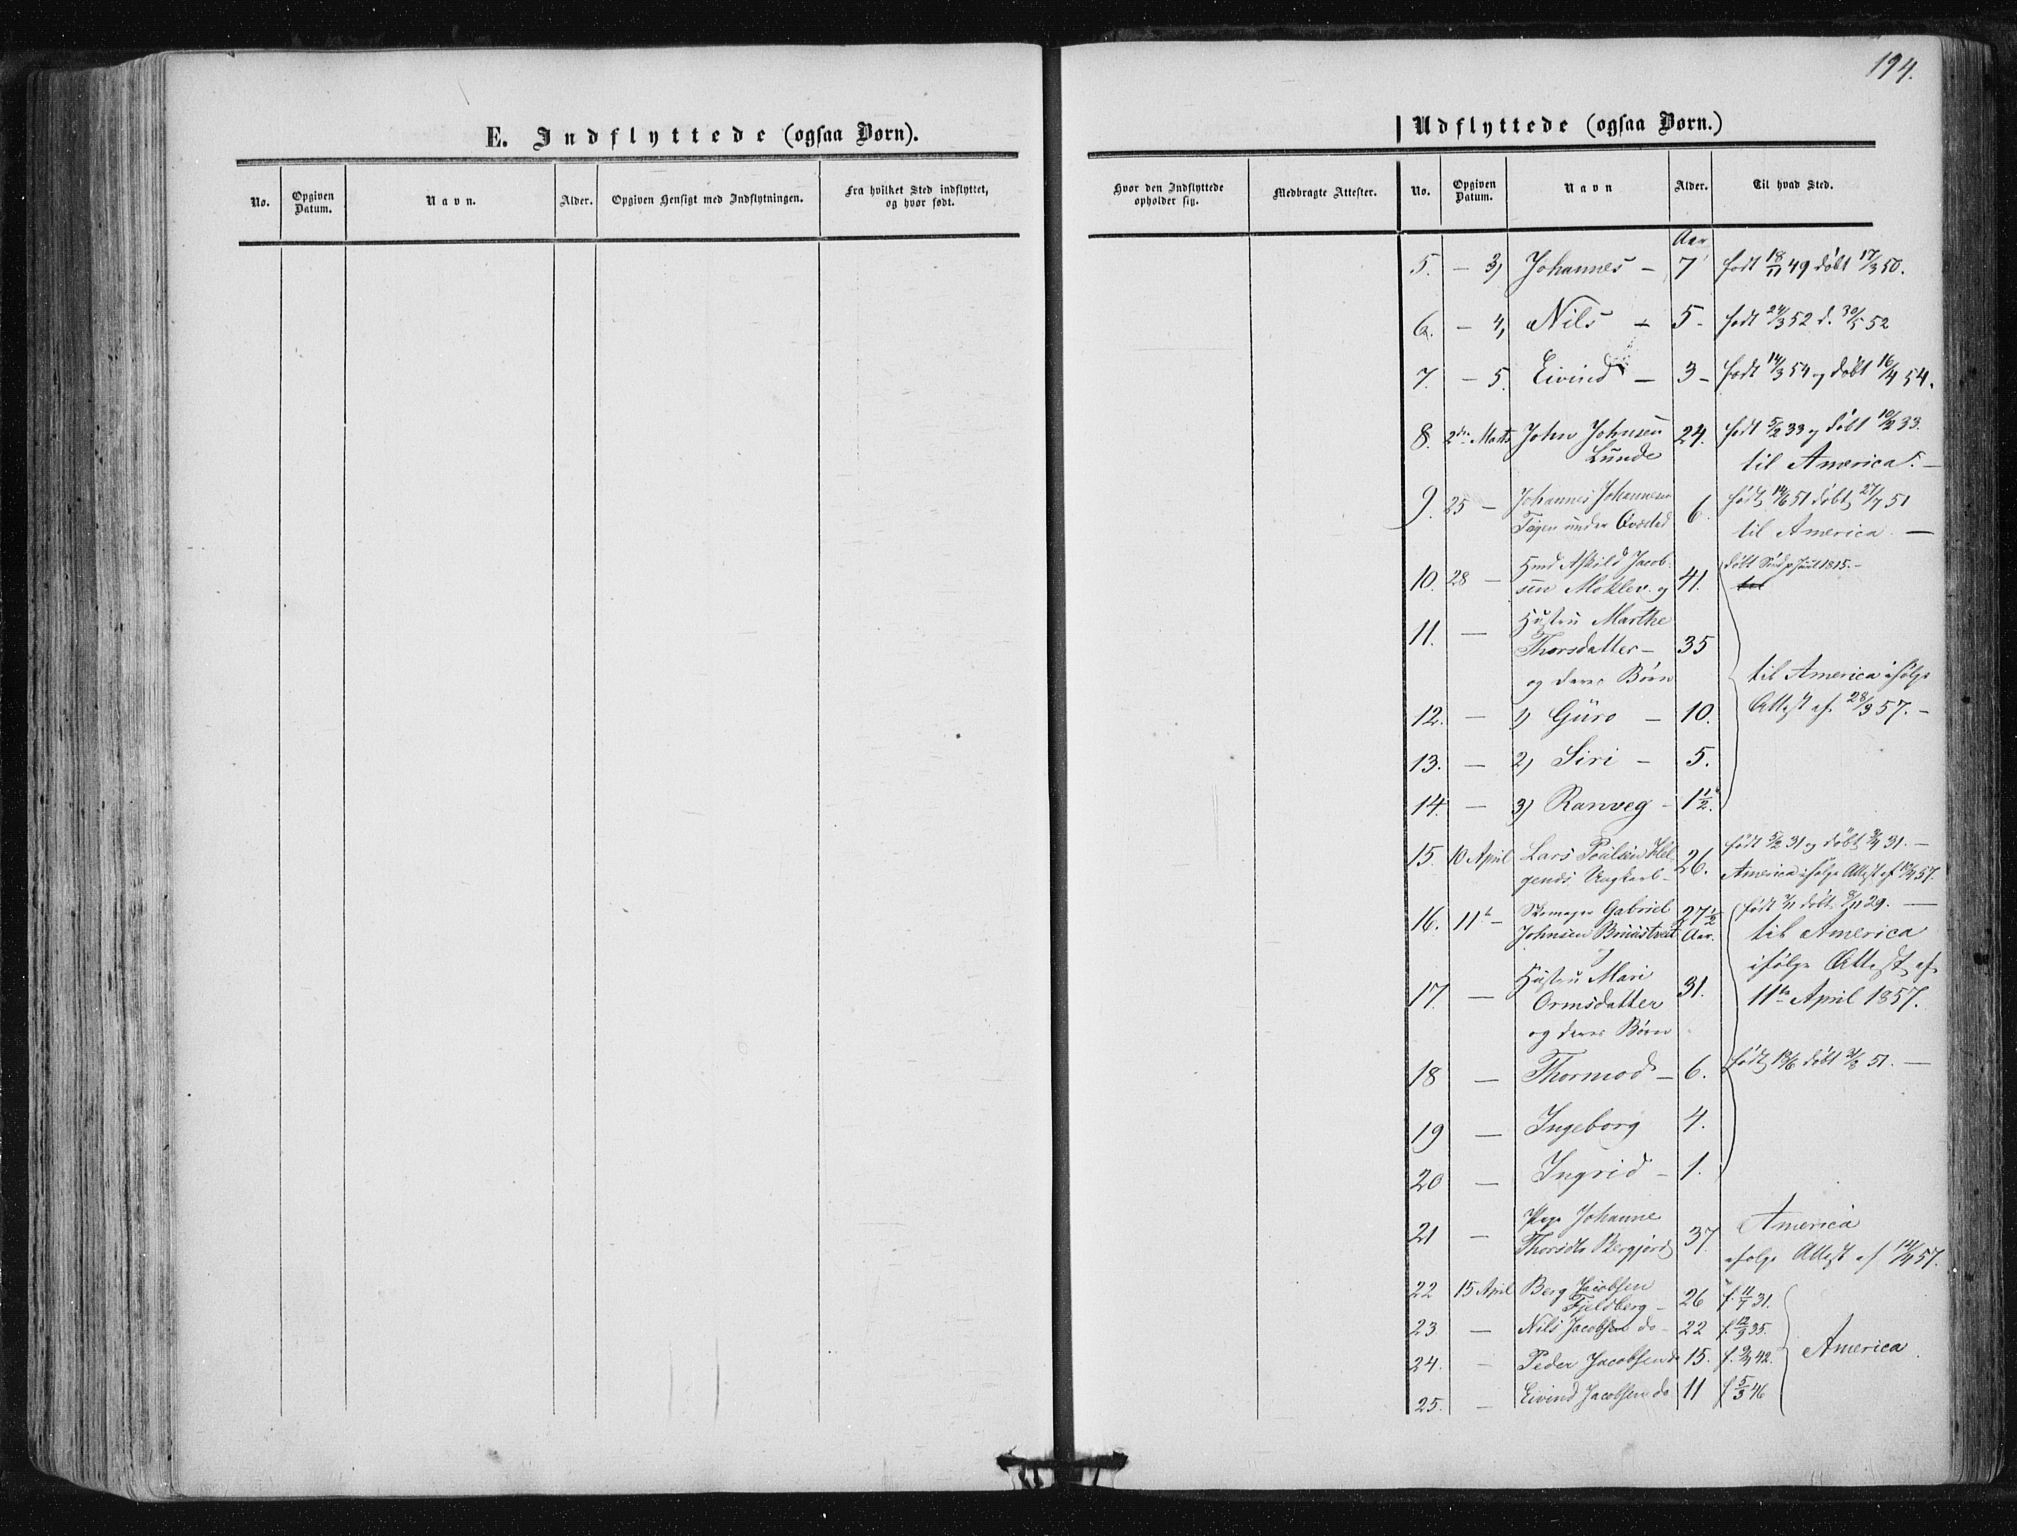 194.
E. Indflyttede (ogsaa Børn).
No. Opgiven Datum. Navn. Alder. Opgiven Hensigt med Indflytningen. Fra hvilket Sted indflyttet, og hvor født.
Udflyttede (ogsaa Børn.)
Hvor den Indflyttede opholder sig. Medbragte Attester. No. Opgiven Datum. Navn Alder. Til hvad Sted.
Aar
5. – 3) Johannes – 7 født 18/11 49 døbt 17/3 50.
6. – 4, Nils – 5 – født 24/3 52 d. 30/5 52
7. – 5. Eivind – 3 – født 14/3 54 og døbt 16/4 54.
8. 2den Marts John Johnsen 24. født 5/2 33 og døbt 10/2 33.
Lunde til America. –
9. 25 – Johannes Johannesen 6. født 14/6 51 døbt 27/7 51
under til America. –
10. 28 – Askild Jacob- 41. døbt 1815. –
sen og
11. – Hustru Marthe
Thorsdatter – 35
og deres Børn til America ifølge
12. – 1) Guro – 10. Attest af 28/3 57. –
13. – 2) Siri – 5.
14. – 3) Ranveg – 1 1/2.
15. 10 April Lars Poulsen Hel- 26. født 5/2 31 og døbt 31. –
gends Ungkarl – America ifølge Attest af 10/4 57.
16. 11te – Gabriel 27 1/2 født døbt 29. –
Johnsen Aar. til America
og ifølge Attest af
17. – Hustru Mari 31. 11te April 1857.
Ormsdatter
og deres Børn
18 – Thormod – 6. født døbt 51. –
19 – Ingeborg 4.
20 – Ingrid – 1.
21 – Pige Johanne 37. America
ifølge Attest af 14/4 57.
22 15 April Berg Jacobsen
Fjeldberg – 26 f. 11/7 31.
23 – Nils Jacobsen do – 22 f. 12/3 35.
24. – Peder Jacobsen do 15. f. 9/4 42. America
25. – Eivind Jacobsen do 11 f. 5/3 46